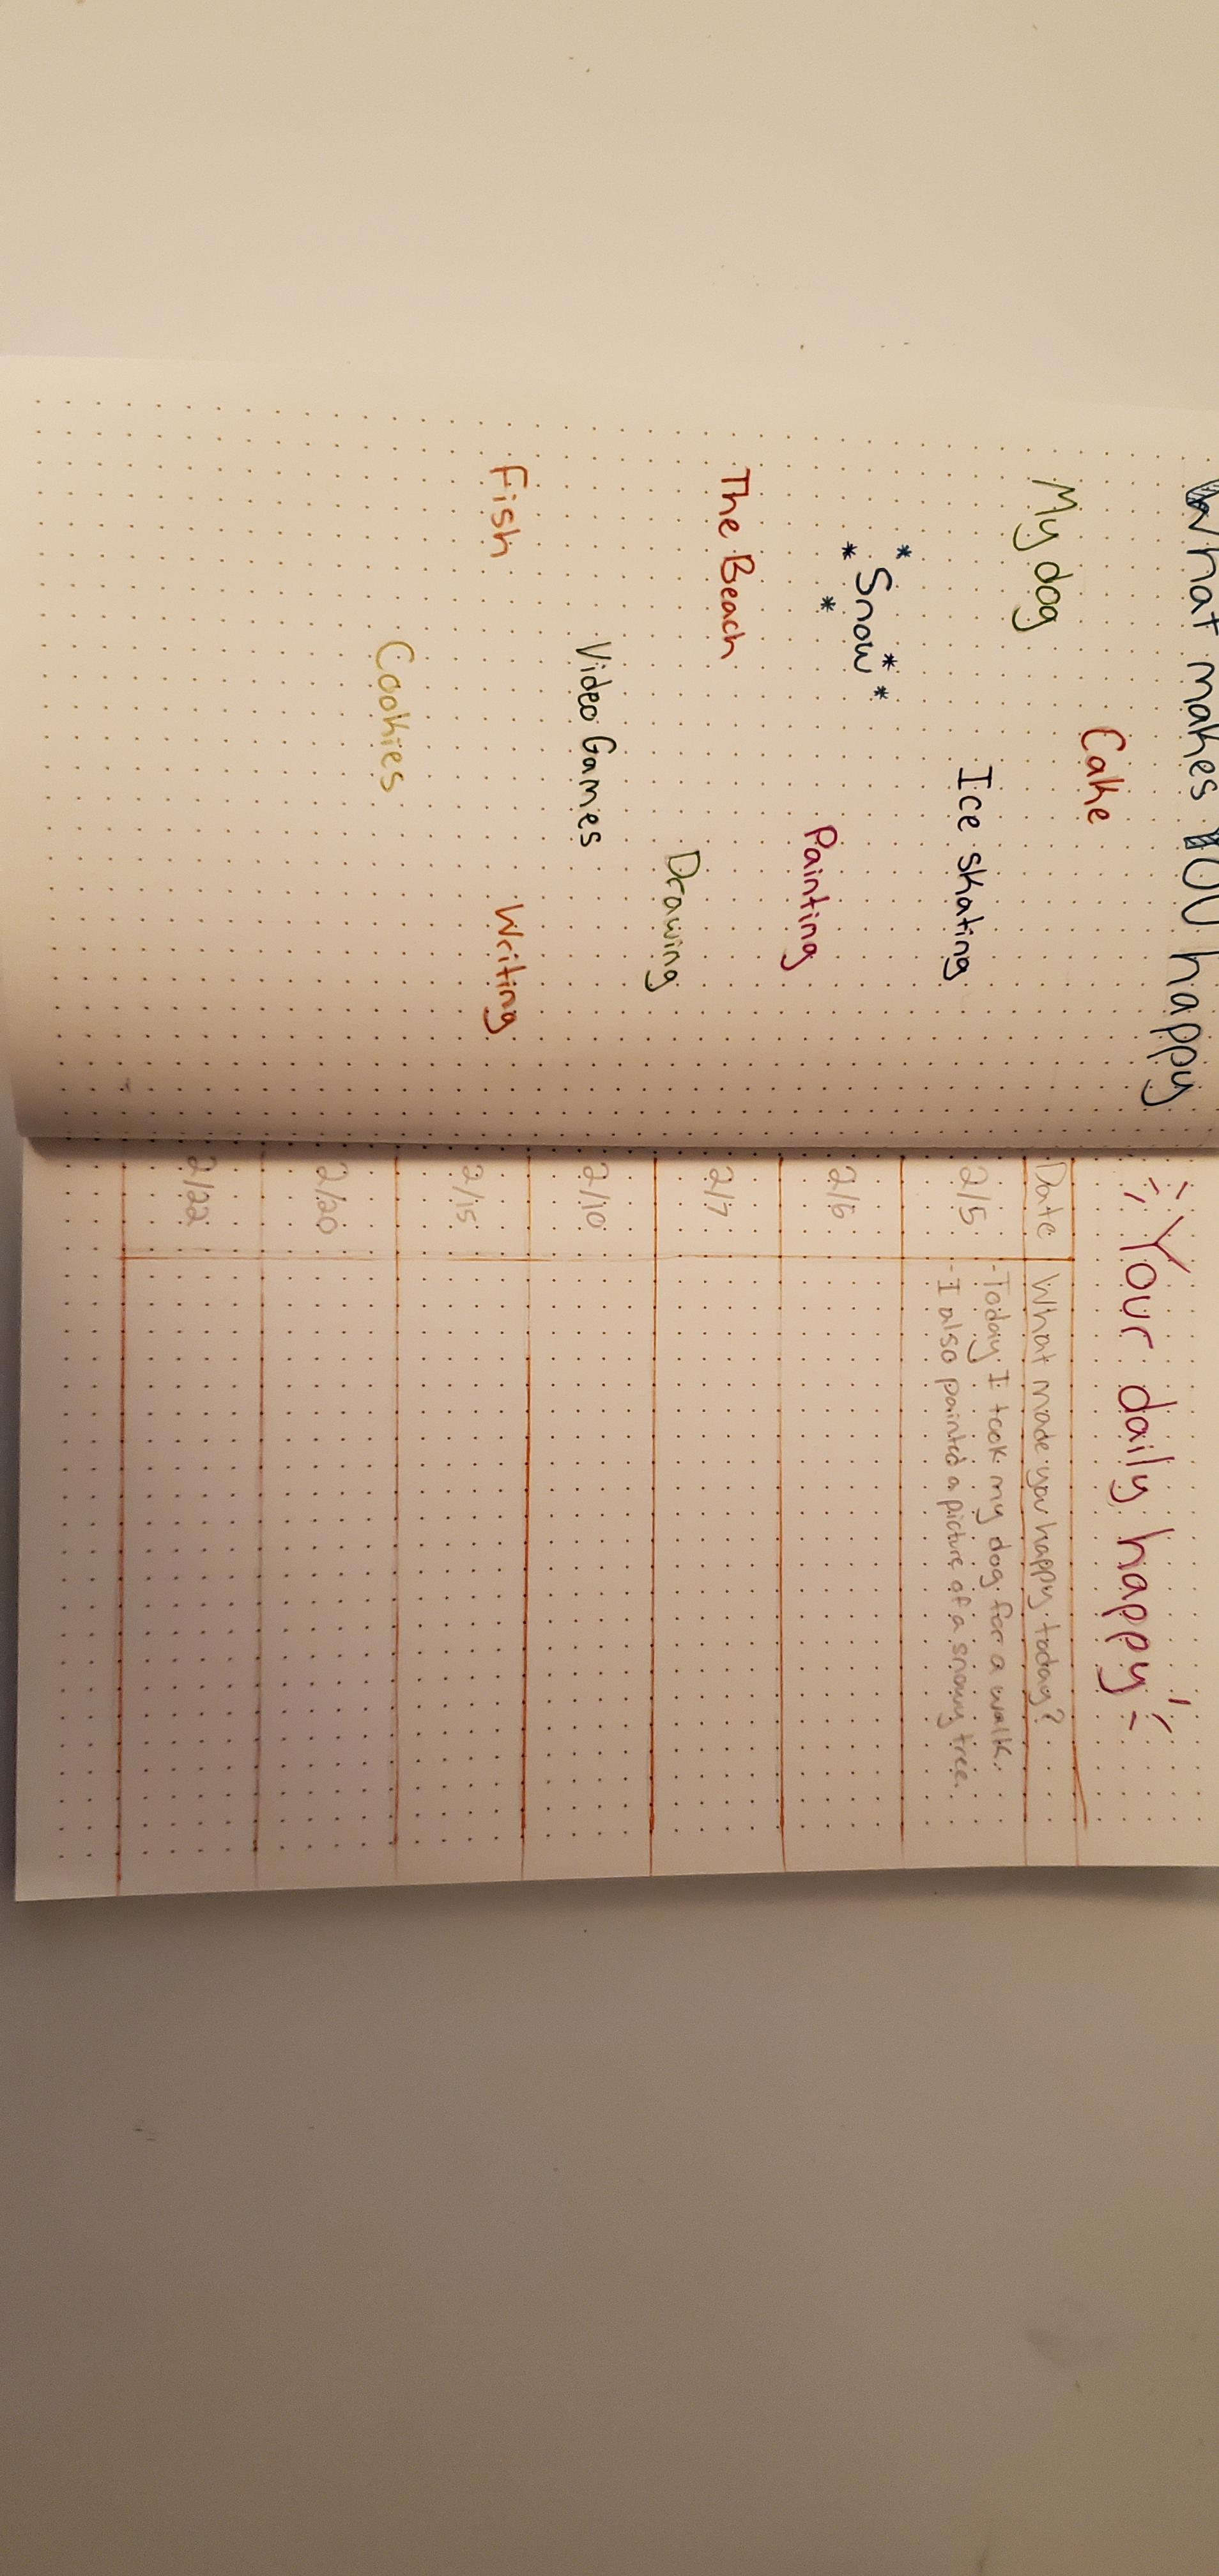 What makes YOU happy
Cake
My dog
Ice skating
* Snow * * * *
Painting
The Beach
Drawing
Video Games
Fish
Writing
Cookies
Your daily happy
Date What made you happy today?
2/5 -Today I took my dog for a walk.
-I also painted a picture of a snowy tree.
2/6
2/7
2/10
2/15
2/20
2/22